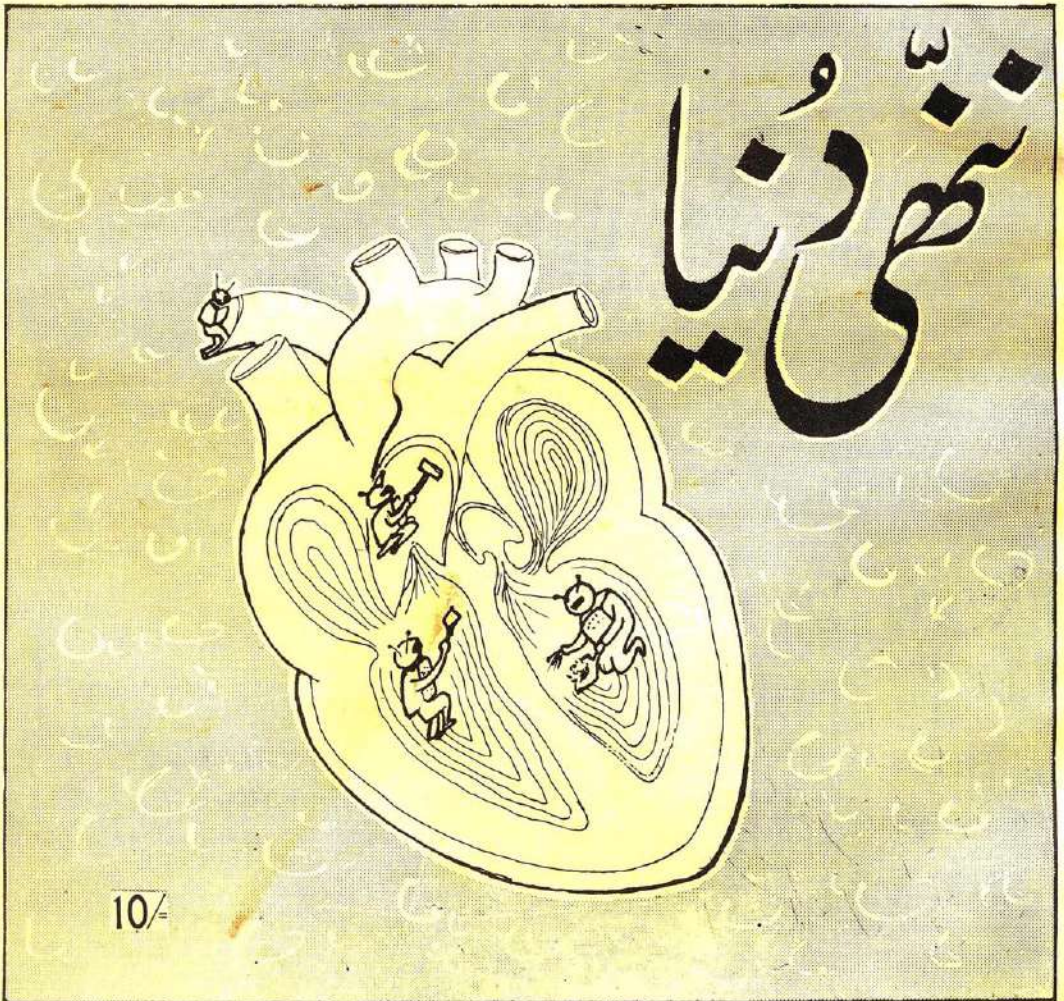 ننھّی دُنیا
10/=